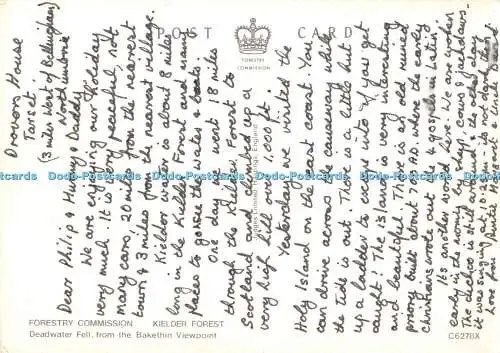 POST CARD
FORESTRY
COMMISSION
Drovers House
Tarset
(3 miles West of Bellingham)
Northumbria
Dear Philip & Henny & Daddy
We are enjoying our Holiday
very much. It is very peaceful, not
many cars. 20 miles from the nearest
town & 3 miles from the nearest village.
Kielder water is about 8 miles
long in the Kielder Forest and many
places to go see the water & boats.
One day we went 18 miles
through the Kielder Forest to
Scotland and climbed up a
very high hill over 1,000 ft.
Yesterday we visited the
Holy Island on the east coast. You
can drive across the causeway while
the Tide is out. There is a little hut
up a ladder to escape into if you get
caught! The island is very interesting
and beautiful. There is an old ruined
priory built about 700 A.D. where the early
Christians wrote out & gospels in Latin.
It's another world here. We are woken
early in the morning by sheep & cows & jackdaws.
The cuckoo is still around & the other day
it was singing at 10.30 p.m. it is not dark then
here on
FORESTRY COMMISSION KIELDER FOREST
Deadwater Fell, from the Bakethin Viewpoint
C6278X
Judges Limited Hastings, England
D-Postcards